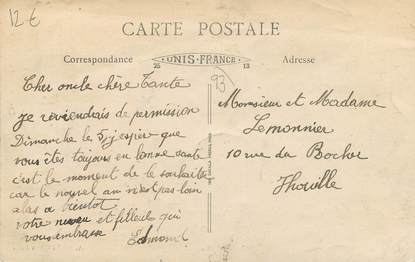 12 €
CARTE POSTALE
Correspondance
UNIS-FRANCE
25
13
Adresse
93
Cher oncle chère Tante
je reviendrais de permission
Dimanche le 5, j'espère que
vous êtes toujours en bonne santé
c'est le moment de le souhaiter
car le nouvel an n'est pas loin
alas a bientot
votre neveu et filleul qui
vous embrasse
Edmond
Monsieur et Madame
Lemonnier
10 rue du Bocher
Thoville